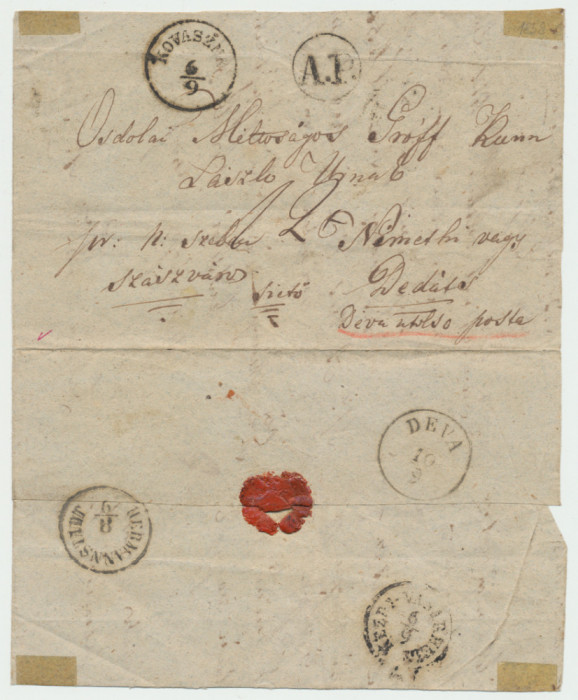 KOVASZNA
6/9
A.P.
Osdolai Méltoságos Gróff Kunn
László Urnak
pr: N: Szeben Némethi vagy
Szászváros sietö Dedáts
Déva utolso posta
DEVA
10
9
HERMANNSTADT
KEZDI-VASARHELY